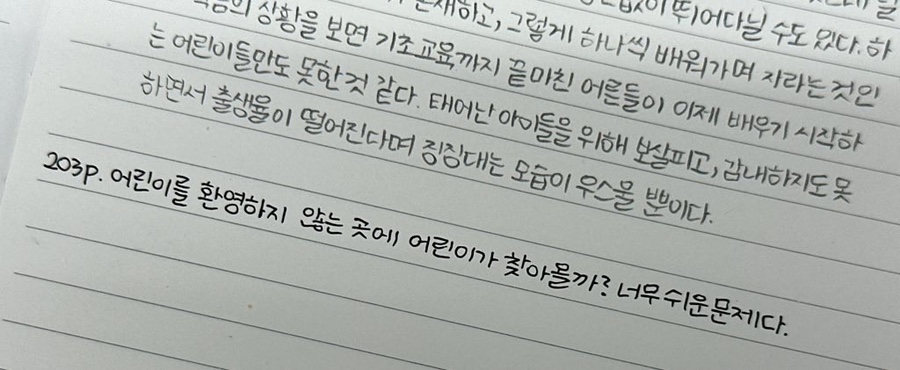 존재하고, 그렇게 하나씩 배워가며 자라는 것인
상황을 보면 기초교육까지 끝마친 어른들이 이제 배우기 시작하
는 어린이들만도 못한 것 같다. 태어난 아이들을 위해 보살피고, 감내하지도 못
하면서 출생율이 떨어진다며 징징대는 모습이 우스울 뿐이다.
203p. 어린이를 환영하지 않는 곳에 어린이가 찾아올까? 너무 쉬운 문제다.